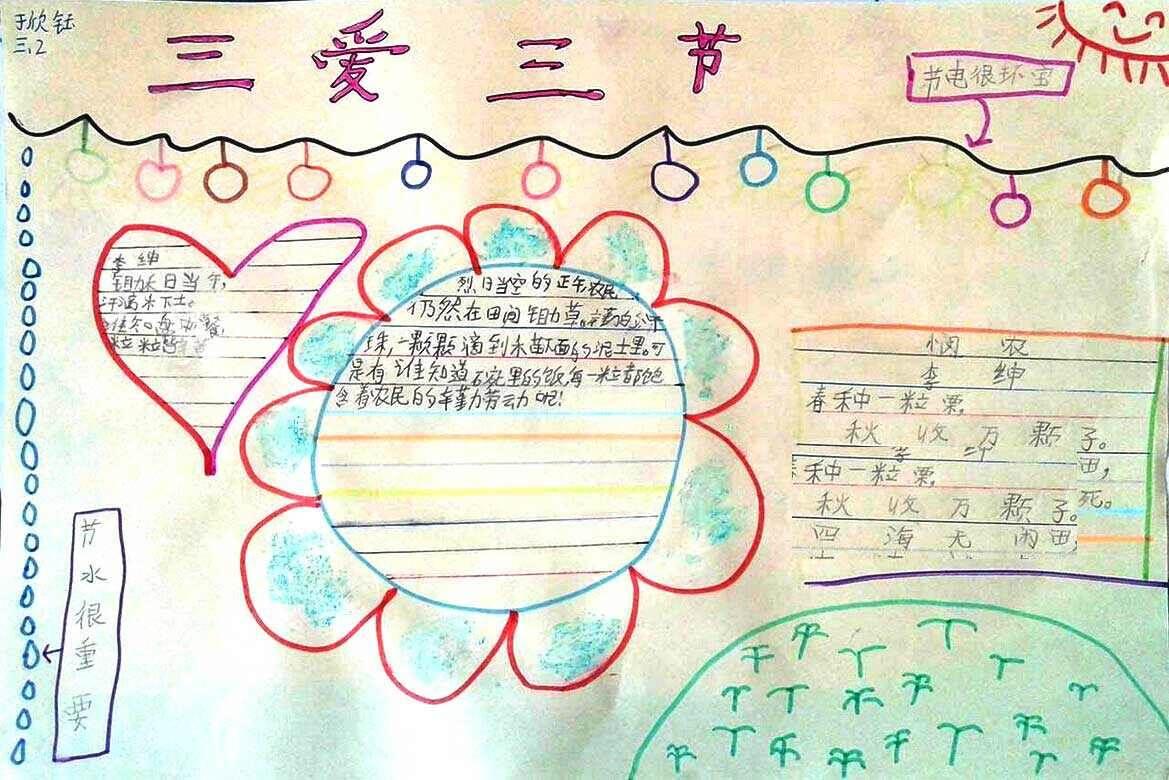 于欣钰
三.2
三 爱 三 节
节电很环宝
李绅
锄禾日当午,
汗滴禾下土。
谁知盘中餐,
粒粒皆
烈日当空的正午,农民
仍然在田间锄草。
珠,一颗颗滴到禾苗下面的泥土里。可
是有谁知道 碗里的饭,每一粒都饱
含着农民的辛勤劳动呢!
悯 农
李 绅
春种一粒粟,
秋 收 万 颗 子。
田,
春种一粒粟,
秋 收 万 颗 子。
死。
四 海 无 闲田,
节水很重要